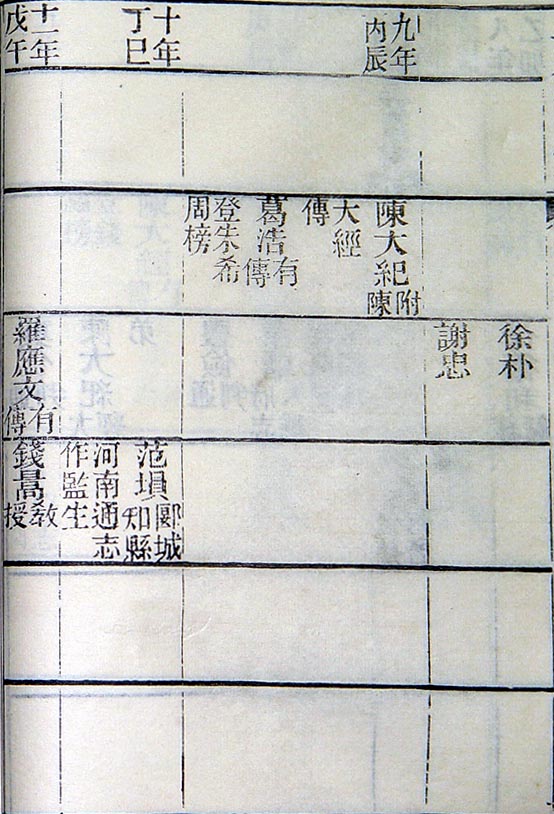 徐朴
謝忠
九年
丙辰
陳大紀附陳
大經
傳
葛浩有傳
登朱希
周榜
十年
丁巳
范塤郾城知縣
河南通志
作監生
十一年
戊午
羅應文有傳
錢暠教授